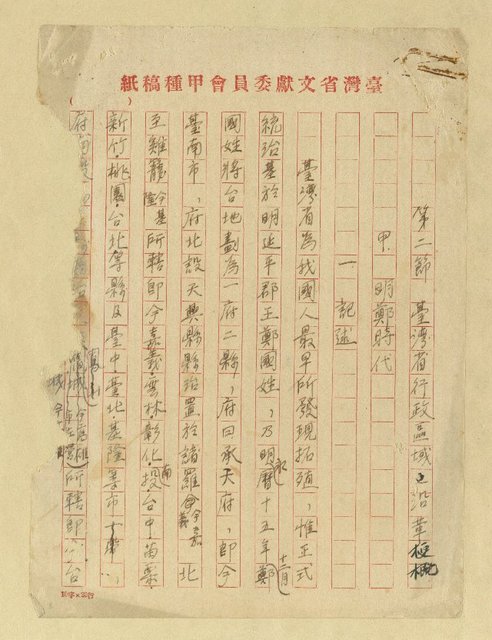 臺灣省文獻委員會甲種稿紙
第二節 臺灣省行政區域之沿革梗概
甲 明鄭時代
一 記述
臺灣省為我國人最早所發現拓殖，惟正式
統治基於明延平郡王鄭國姓，乃明永曆十五年十二月鄭
國姓將台地劃為一府二縣，府曰承天府，即今
臺南市，府北設天興縣縣治置於諸羅今嘉義北
至雞籠今基隆所轄即今嘉義雲林彰化南投台中苗栗
新竹桃園台北等縣及臺中臺北基隆等市
府南
所轄即今台